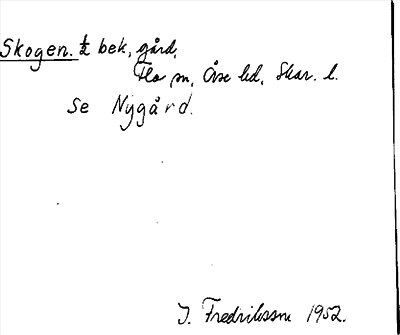 Skogen. ½ bek, gård,
Flo sn, Åse hd, Skar. l.
Se Nygård.
I. Fredriksson 1952.